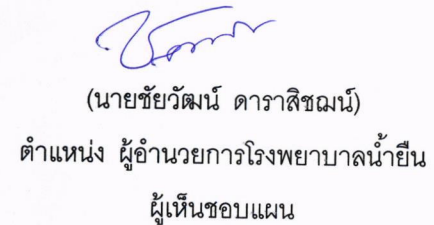 (นายชัยวัฒน์ ดาราสิชฌน์)
ตำแหน่ง ผู้อำนวยการโรงพยาบาลน้ำยืน
ผู้เห็นชอบแผน